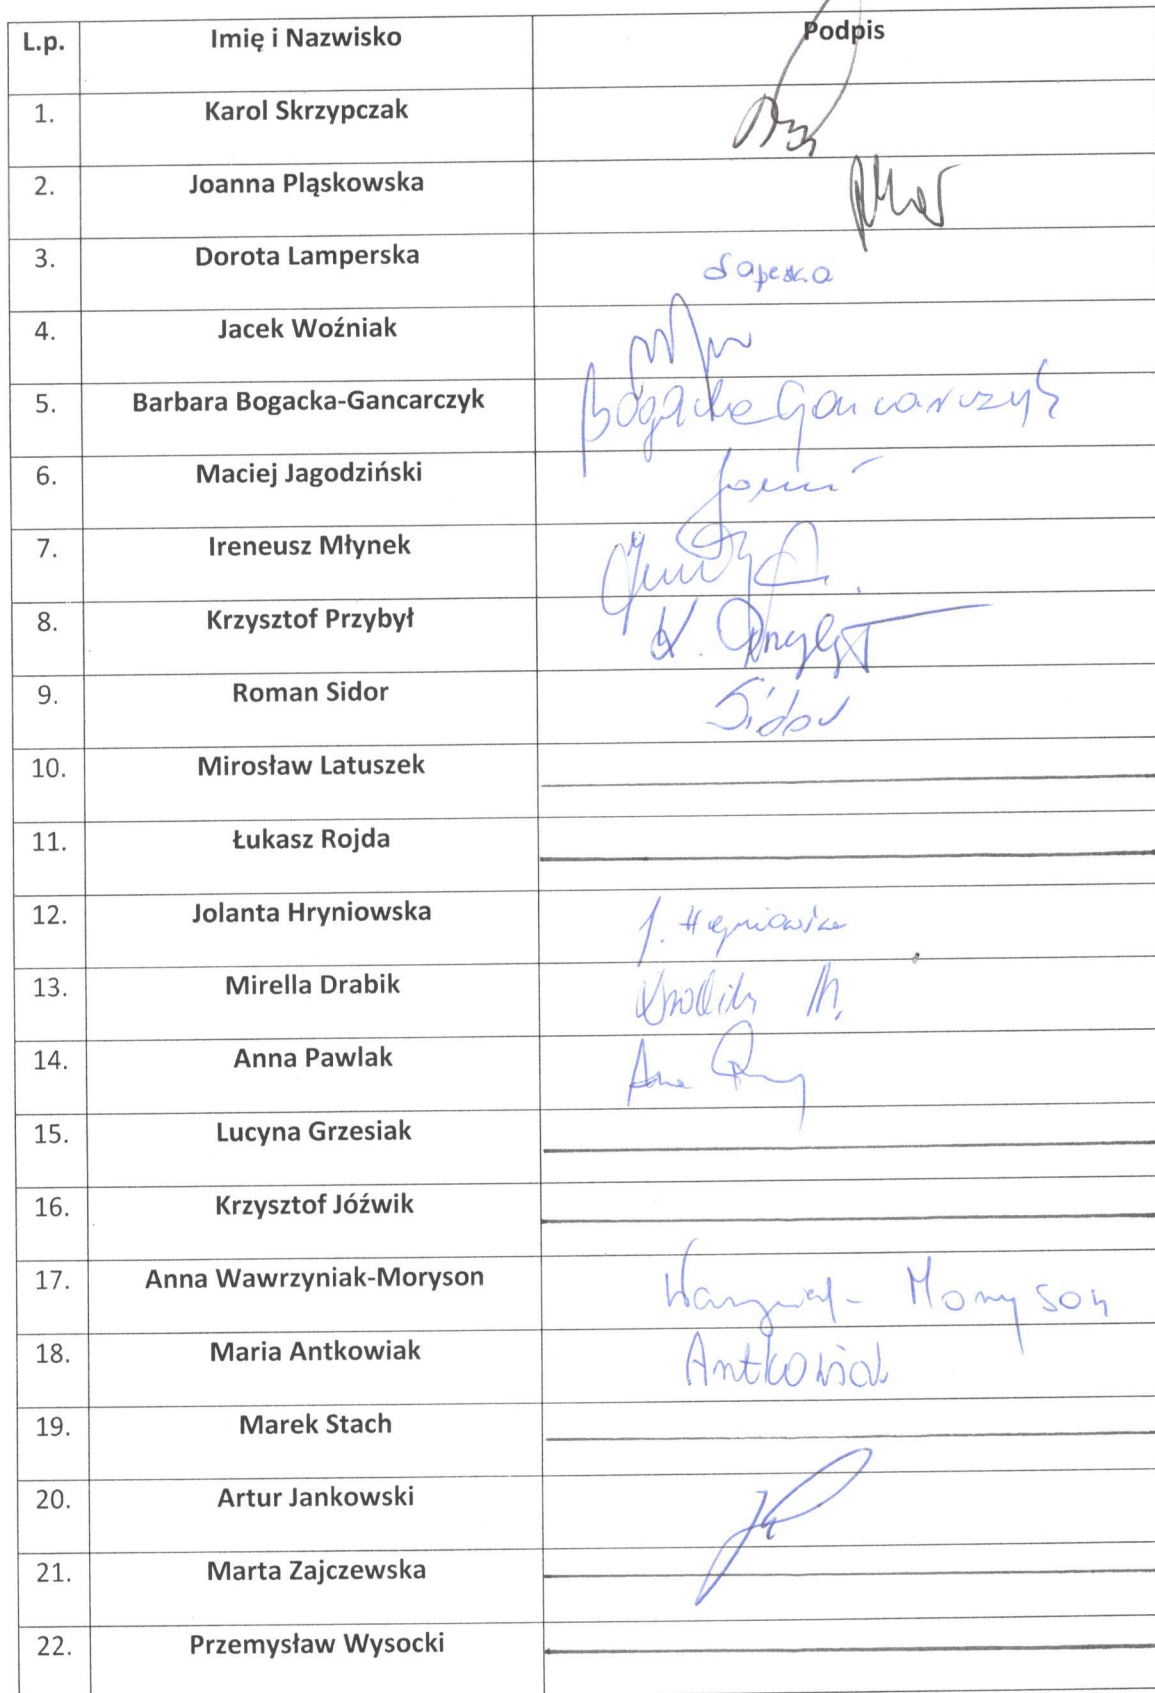 L.p. Imię i Nazwisko Podpis
1. Karol Skrzypczak
2. Joanna Pląskowska
3. Dorota Lamperska
4. Jacek Woźniak
5. Barbara Bogacka-Gancarczyk Bogacka Gancarczyk
6. Maciej Jagodziński
7. Ireneusz Młynek
8. Krzysztof Przybył K.
9. Roman Sidor Sidor
10. Mirosław Latuszek
11. Łukasz Rojda
12. Jolanta Hryniowska J.
13. Mirella Drabik Drabik M.
14. Anna Pawlak
15. Lucyna Grzesiak
16. Krzysztof Jóźwik
17. Anna Wawrzyniak-Moryson Moryson
18. Maria Antkowiak Antkowiak
19. Marek Stach
20. Artur Jankowski
21. Marta Zajczewska
22. Przemysław Wysocki